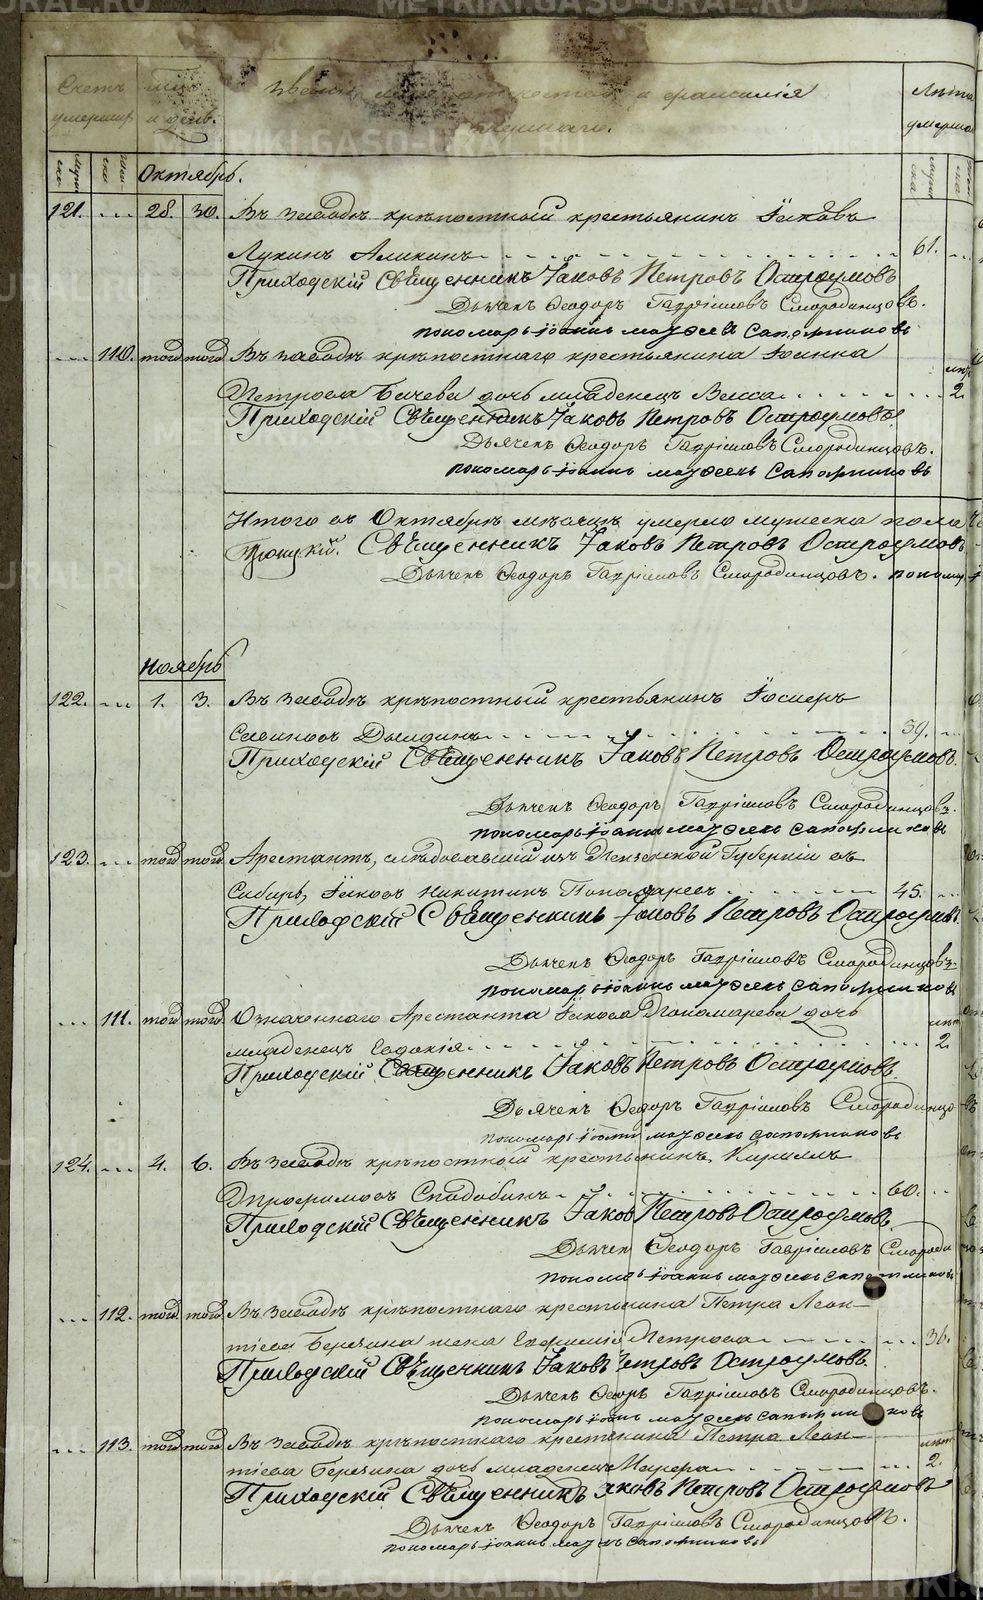 METRIKI.GASO-URAL.RU
Счетъ умершихъ
и день.
Званіе, имя, отчество и фамилія
умершаго.
Лѣта умершаго
Октябрь.
121. 28. 30. Въ заводѣ крѣпостный крестьянинъ Іаковъ
Лукинъ Аликинъ 61.
Приходскій Священникъ Іаковъ Петровъ Остроумовъ
Дьячекъ Ѳеодоръ Гавріиловъ Смородинцовъ.
пономарь Іоаннъ Матѳеевъ Сапожниковъ
110. того того Въ заводѣ крѣпостнаго крестьянина Іоанна
Петрова дочь младенецъ 2.
Приходскій Священникъ Іаковъ Петровъ Остроумовъ
Дьячекъ Ѳеодоръ Гавріиловъ Смородинцовъ.
пономарь Іоаннъ Матѳеевъ Сапожниковъ
Итого въ Октябрѣ мѣсяцѣ умерло мужеска пола
Священникъ Іаковъ Петровъ Остроумовъ
Дьячекъ Ѳеодоръ Гавріиловъ Смородинцовъ. пономарь
Ноябрь
122. 1. 3. Въ заводѣ крѣпостный крестьянинъ Іосифъ
39.
Приходскій Священникъ Іаковъ Петровъ Остроумовъ.
Дьячекъ Ѳеодоръ Гавріиловъ Смородинцовъ.
пономарь Іоаннъ Матѳеевъ Сапожниковъ
123. того того Арестантъ, слѣдовавшій изъ Пензенской Губерніи въ
Сибирь, Іаковъ Никитинъ Пономаревъ 45.
Приходскій Священникъ Іаковъ Петровъ Остроумовъ.
Дьячекъ Ѳеодоръ Гавріиловъ Смородинцовъ.
пономарь Іоаннъ Матѳеевъ Сапожниковъ
111. того того Означеннаго Арестанта Іакова Пономарева дочь
младенецъ Евдокія 2.
Приходскій Священникъ Іаковъ Петровъ Остроумовъ.
Дьячекъ Ѳеодоръ Гавріиловъ Смородинцовъ
пономарь Іоаннъ Матѳеевъ Сапожниковъ
124. 4. 6. Въ заводѣ крѣпостный крестьянинъ Кириллъ
60.
Приходскій Священникъ Іаковъ Петровъ Остроумовъ.
Дьячекъ Ѳеодоръ Гавріиловъ
пономарь Іоаннъ Матѳеевъ Сапожниковъ
112. того того Въ заводѣ крѣпостнаго крестьянина Петра Леон-
тіева жена Евфимія Петрова 36.
Приходскій Священникъ Іаковъ Петровъ Остроумовъ.
Дьячекъ Ѳеодоръ Гавріиловъ Смородинцовъ.
пономарь Іоаннъ Матѳеевъ Сапожниковъ
113. того того Въ заводѣ крѣпостнаго крестьянина Петра Леон-
тіева дочь младенецъ 2.
Приходскій Священникъ Іаковъ Петровъ Остроумовъ
Дьячекъ Ѳеодоръ Гавріиловъ Смородинцовъ.
пономарь Іоаннъ Матѳеевъ Сапожниковъ
METRIKI.GASO-URAL.RU